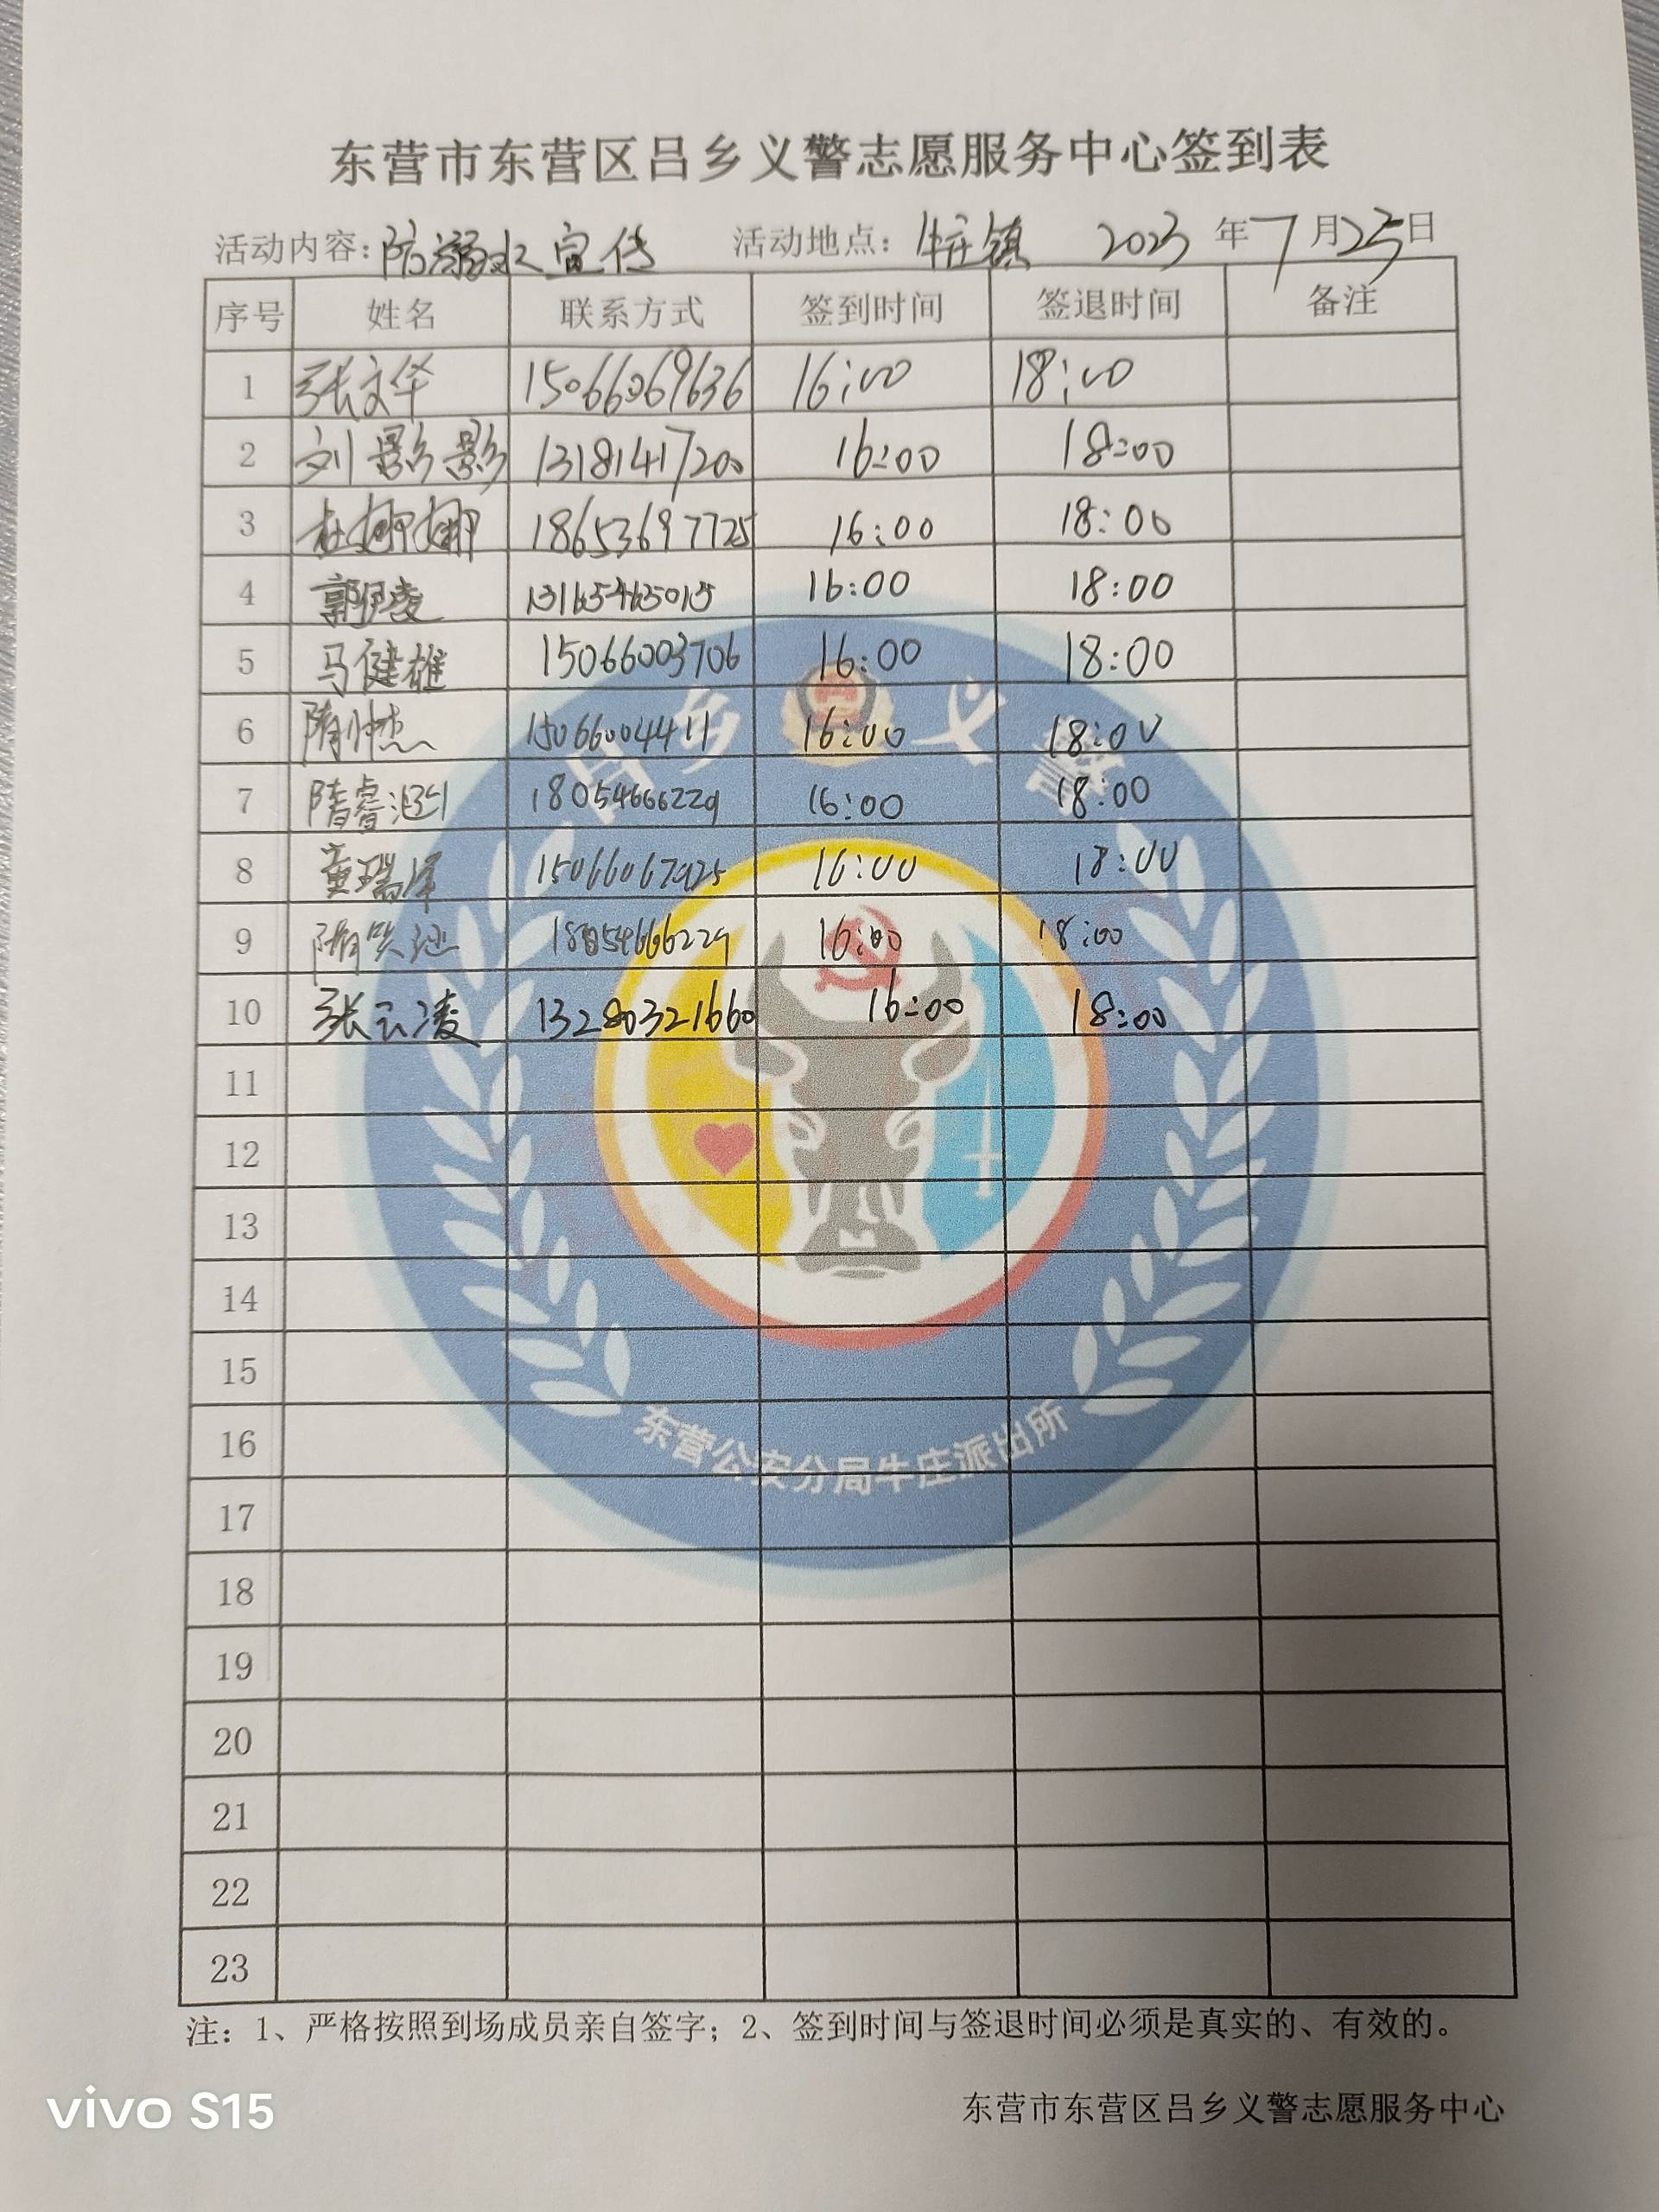 东营市东营区吕乡义警志愿服务中心签到表
活动内容：防溺水宣传 活动地点：牛庄镇 2023年7月25日
序号 姓名 联系方式 签到时间 签退时间 备注
1 张文华 15066069636 16:00 18:00
2 刘影影 13181417200 16:00 18:00
3 杜娜娜 18653697725 16:00 18:00
4 郭伊凌 13165465015 16:00 18:00
5 马健雄 15066003706 16:00 18:00
6 隋帅杰 15066004411 16:00 18:00
7 隋睿 18054666229 16:00 18:00
8 董瑞泽 15066067925 16:00 18:00
9 隋笑 18054666229 16:00 18:00
10 张云凌 13280321660 16:00 18:00
11
12
13
14
15
16
17
18
19
20
21
22
23
吕乡义警
东营公安分局牛庄派出所
注：1、严格按照到场成员亲自签字；2、签到时间与签退时间必须是真实的、有效的。
东营市东营区吕乡义警志愿服务中心
vivo S15